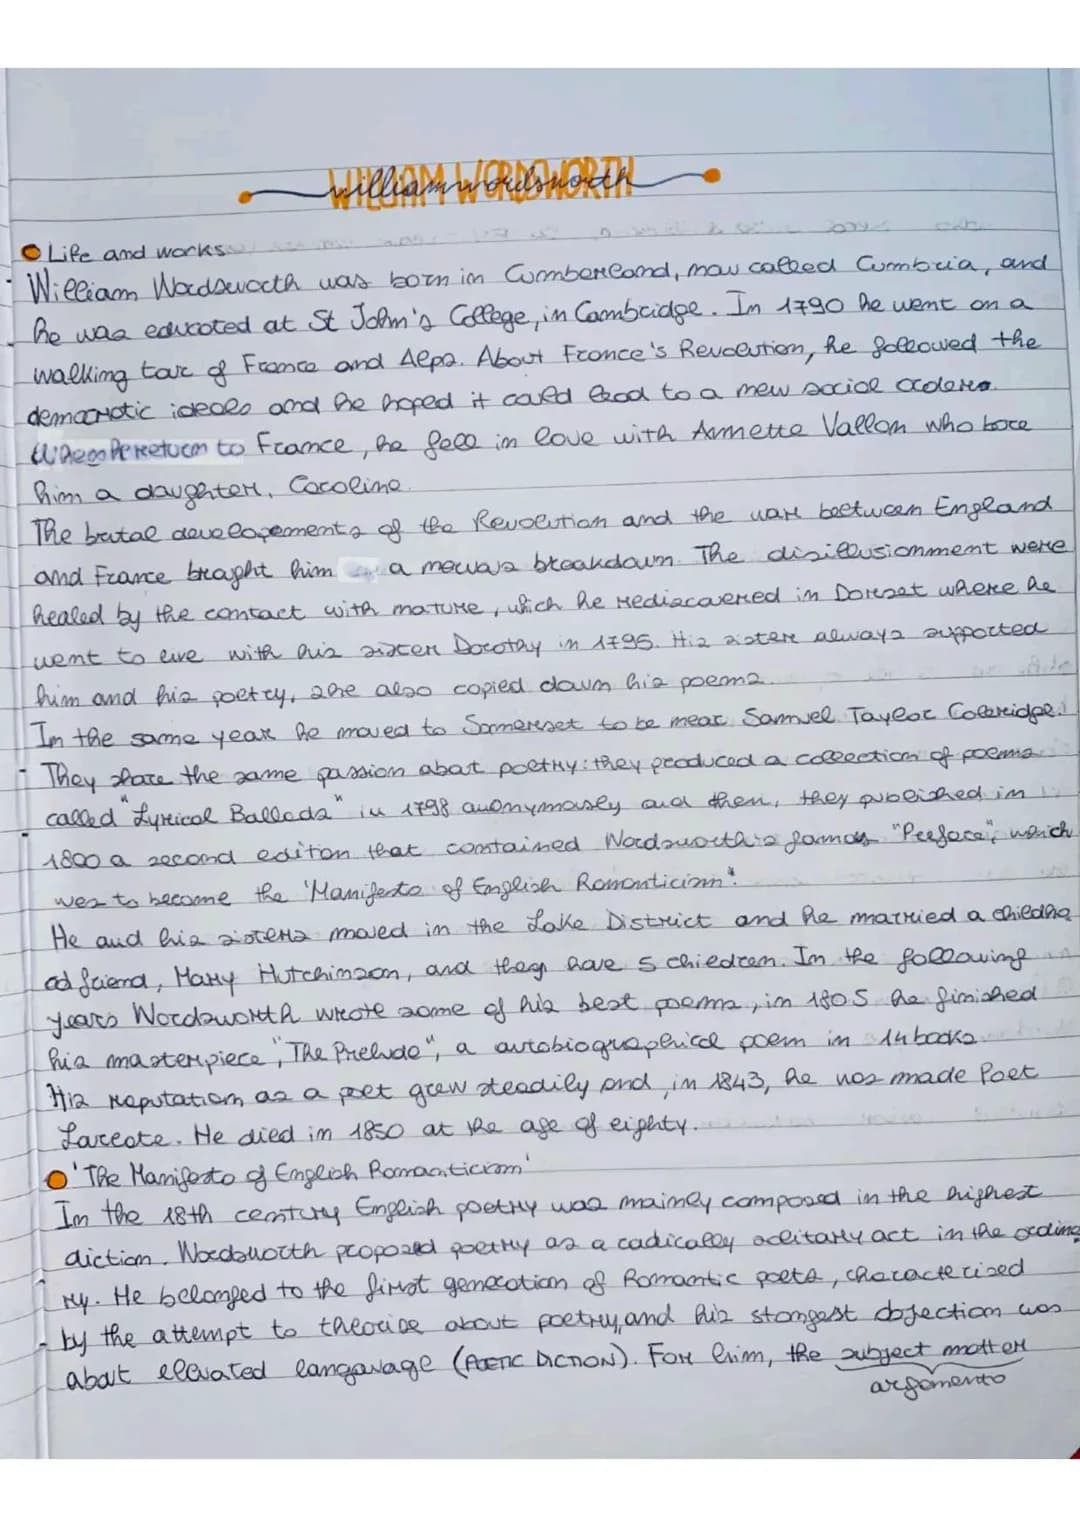 WILLIAM WORDSWORTH
william wordsworth
Life and works
William Wordsworth was born in Cumberland, now called Cumbria, and
he was educated at St John's College, in Cambridge. In 1790 he went on a
walking tour of France and Alps. About France's Revolution, he followed the
democratic ideals and he hoped it could lead to a new social orders.
When he return to France, he fell in love with Annette Vallon who bore
him a daughter, Caroline.
The brutal developements of the Revolution and the war beetween England
and France braught him a nervous breakdown. The disillusionment were
healed by the contact with nature, which he rediscovered in Dorset where he
went to live with his sister Dorothy in 1795. His sister always supported
him and his poetry, she also copied down his poems.
In the same year he moved to Somerset to be near Samuel Taylor Coleridge.
They share the same passion about poetry: they produced a collection of poems
called "Lyrical Ballads" in 1798 anonymously and then, they published in
1800 a second editon that contained Wordsworth's famous "Preface", which
was to become the 'Manifesto of English Romanticism'.
He and his sisters moved in the Lake District and he married a childho
od friend, Mary Hutchinson, and they have 5 children. In the following
years Wordsworth wrote some of his best poems, in 1805 he finished
his masterpiece, "The Prelude", a autobiographical poem in 14 books.
His reputation as a poet grew steadily and, in 1843, he was made Poet
Lareate. He died in 1850 at the age of eighty.
'The Manifesto of English Romanticism'
In the 18th century English poetry was mainly composed in the highest
diction. Wordsworth proposed poetry as a radically solitary act in the ordina
ry. He belonged to the first generation of Romantic poets, characterized
by the attempt to theorise about poetry, and his stongest objection was
about elevated langauage (POETIC DICTION). For him, the subject matter
argomento